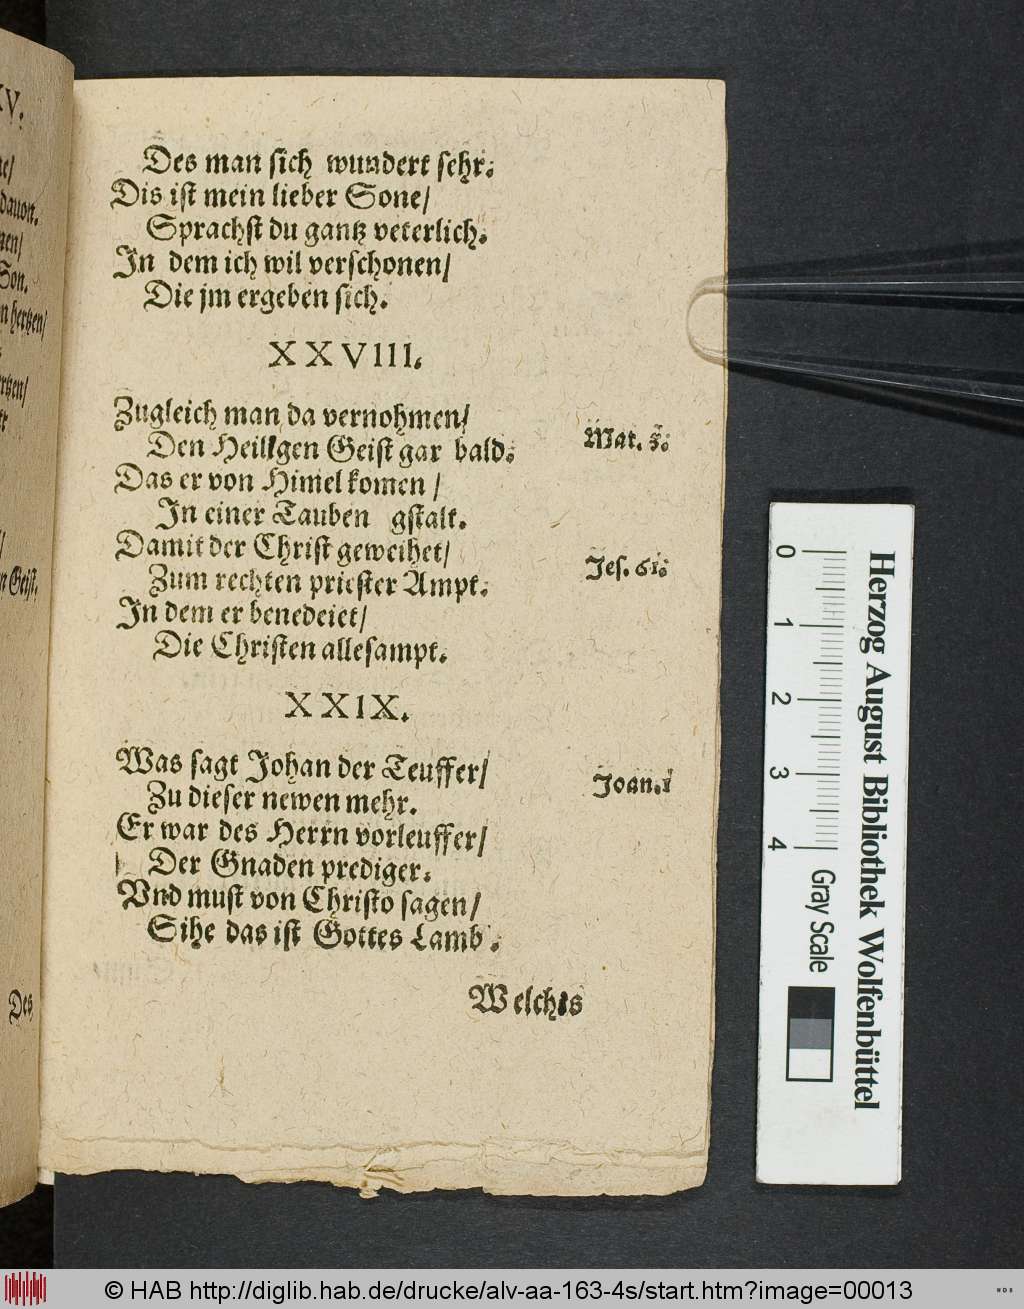 XV.
ne/
dauon.
nen/
Son.
n hertzen/
rtzen/
n Geist.
Des
Des man sich wundert sehr.
Dis ist mein lieber Sone/
Sprachst du gantz veterlich.
In dem ich wil verschonen/
Die jm ergeben sich.
XXVIII.
Zugleich man da vernohmen/
Den Heiligen Geist gar bald.
Mat. 3.
Das er von Himel komen /
In einer Tauben gstalt.
Damit der Christ geweihet/
Jes. 61.
Zum rechten priester Ampt.
In dem er benedeiet/
Die Christen allesampt.
XXIX.
Was sagt Johan der Teuffer/
Joan. 1
Zu dieser newen mehr.
Er war des Herrn vorleuffer/
Der Gnaden prediger.
Vnd must von Christo sagen/
Sihe das ist Gottes Lamb.
Welchs
0 1 2 3 4 Gray Scale
Herzog August Bibliothek Wolfenbüttel
© HAB http://diglib.hab.de/drucke/alv-aa-163-4s/start.htm?image=00013